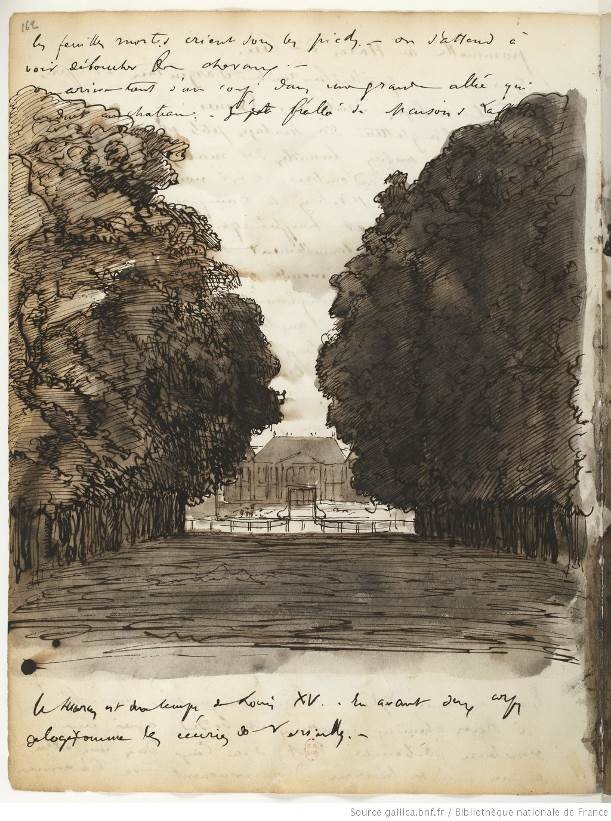 162
les feuilles mortes crient sous les pieds. – on s'attend à
voir déboucher
on arrive tout d'un coup dans une grande allée qui
conduit au chateau. de Maisons
le Marais est du temps de Louis XV. en avant deux corps
de logis comme les écuries de Versailles. –
Source gallica.bnf.fr / Bibliothèque nationale de France